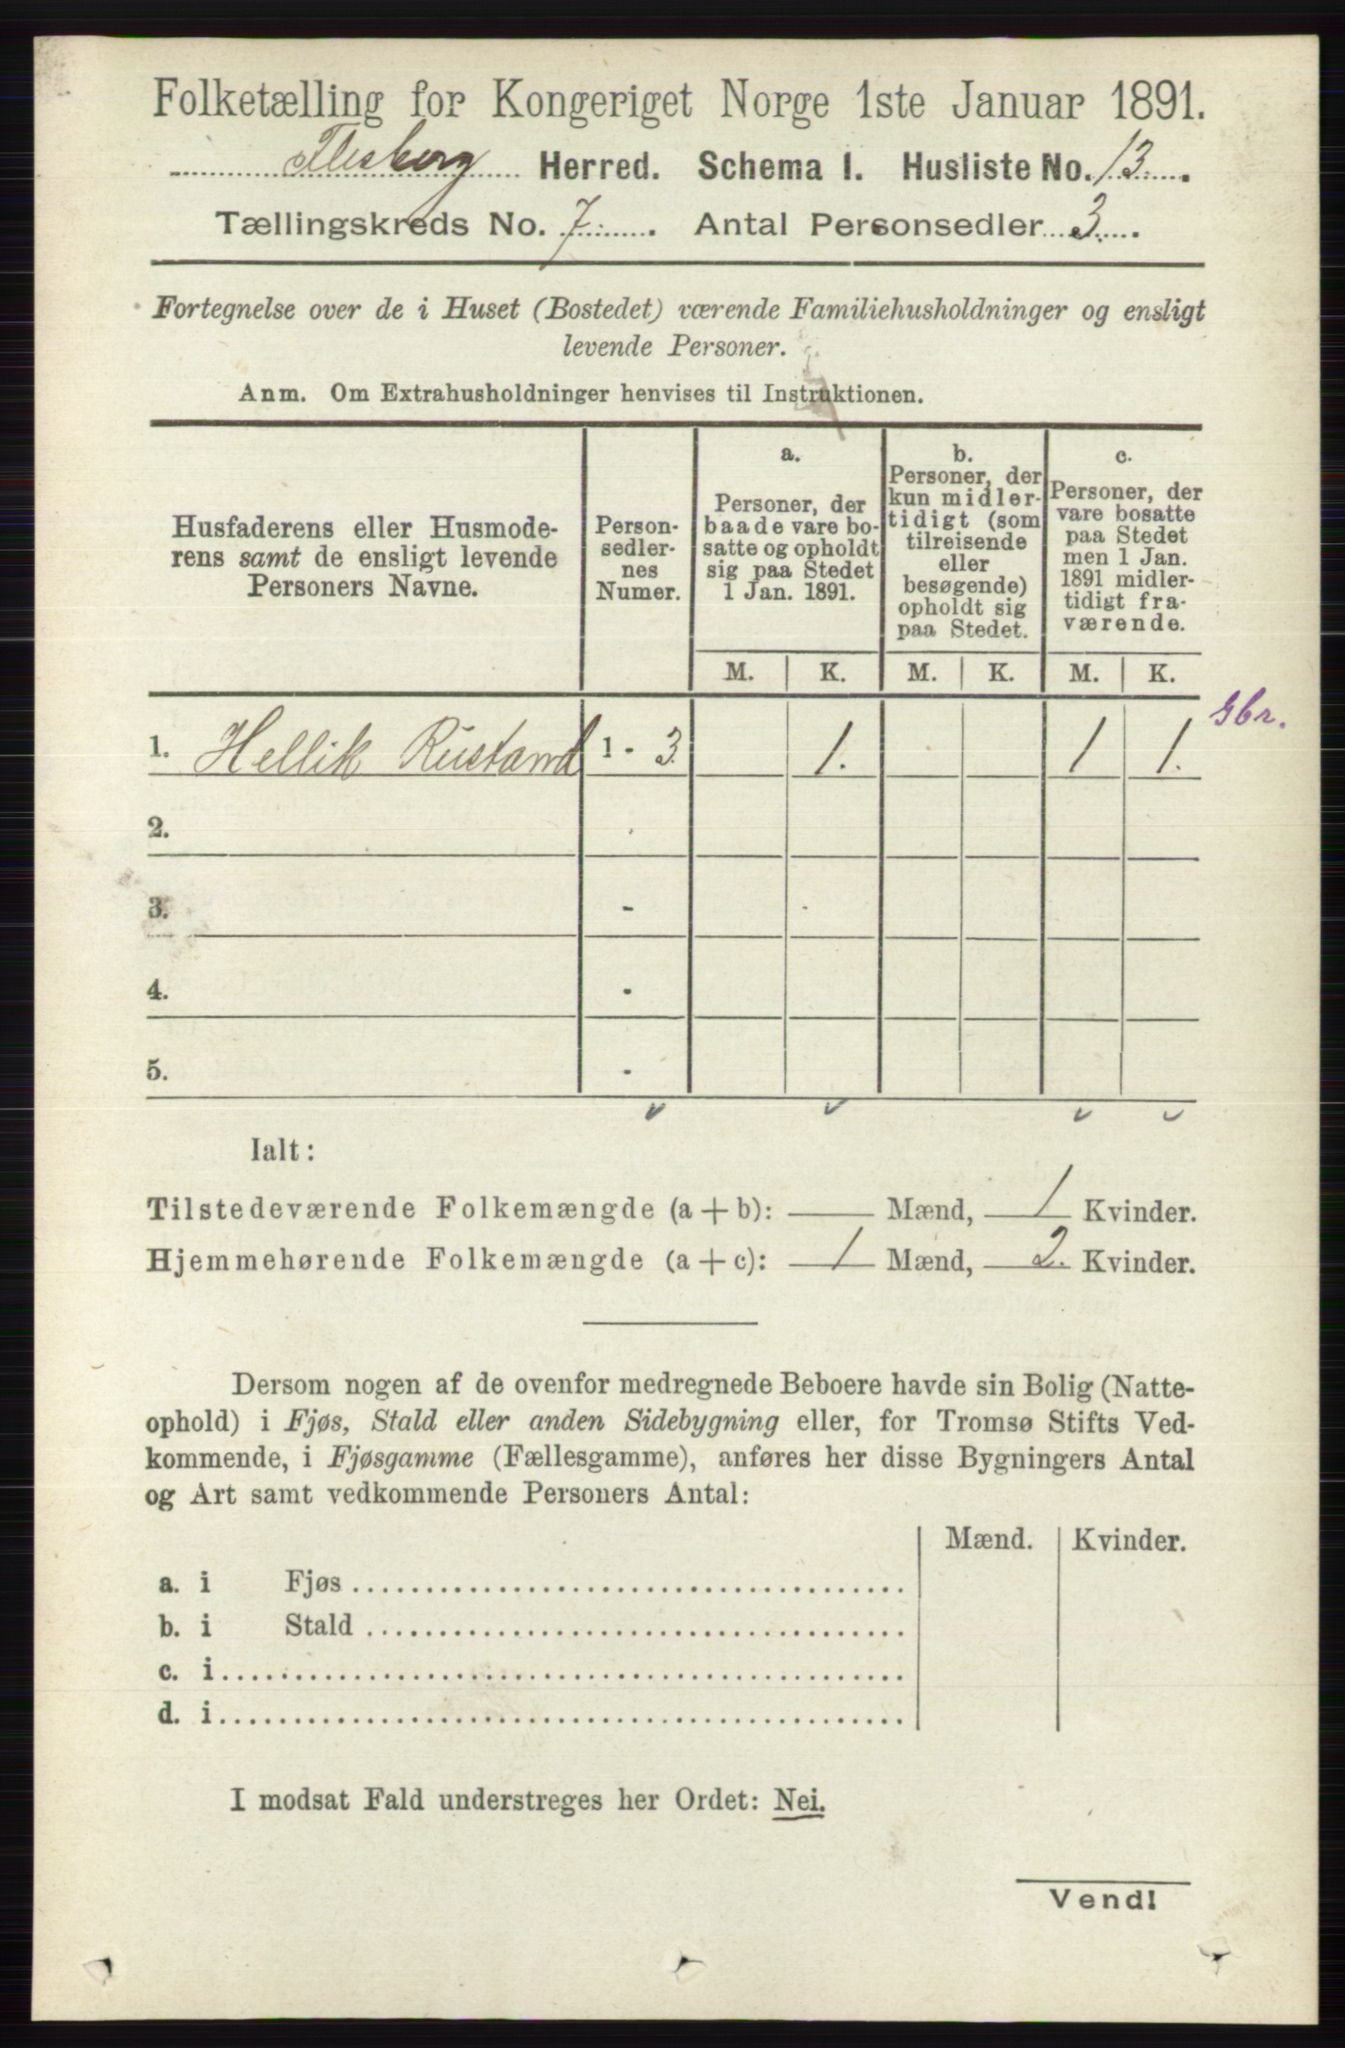 Folketælling for Kongeriget Norge 1ste Januar 1891.
Flesberg Herred. Schema I. Husliste No. 13.
Tællingskreds No. 7. Antal Personsedler 3.
Fortegnelse over de i Huset (Bostedet) værende Familiehusholdninger og ensligt
levende Personer.
Anm. Om Extrahusholdninger henvises til Instruktionen.
Husfaderens eller Husmode-
rens samt de ensligt levende
Personers Navne.
Person-
sedler-
nes
Numer.
a.
Personer, der
baade vare bo-
satte og opholdt
sig paa Stedet
1 Jan. 1891.
b.
Personer, der
kun midler-
tidigt (som
tilreisende
eller
besøgende)
opholdt sig
paa Stedet.
c.
Personer, der
vare bosatte
paa Stedet
men 1 Jan.
1891 midler-
tidigt fra-
værende.
M. K. M. K. M. K.
Gbr.
1. Hellik Rustand 1 - 3 1. 1 1.
2.
3. -
4. -
5. -
Ialt:
Tilstedeværende Folkemængde (a + b): — Mænd, 1 Kvinder.
Hjemmehørende Folkemængde (a + c): 1 Mænd, 2. Kvinder.
Dersom nogen af de ovenfor medregnede Beboere havde sin Bolig (Natte-
ophold) i Fjøs, Stald eller anden Sidebygning eller, for Tromsø Stifts Ved-
kommende, i Fjøsgamme (Fællesgamme), anføres her disse Bygningers Antal
og Art samt vedkommende Personers Antal:
Mænd. Kvinder.
a. i Fjøs
b. i Stald
c. i
d. i
I modsat Fald understreges her Ordet: Nei.
Vend!